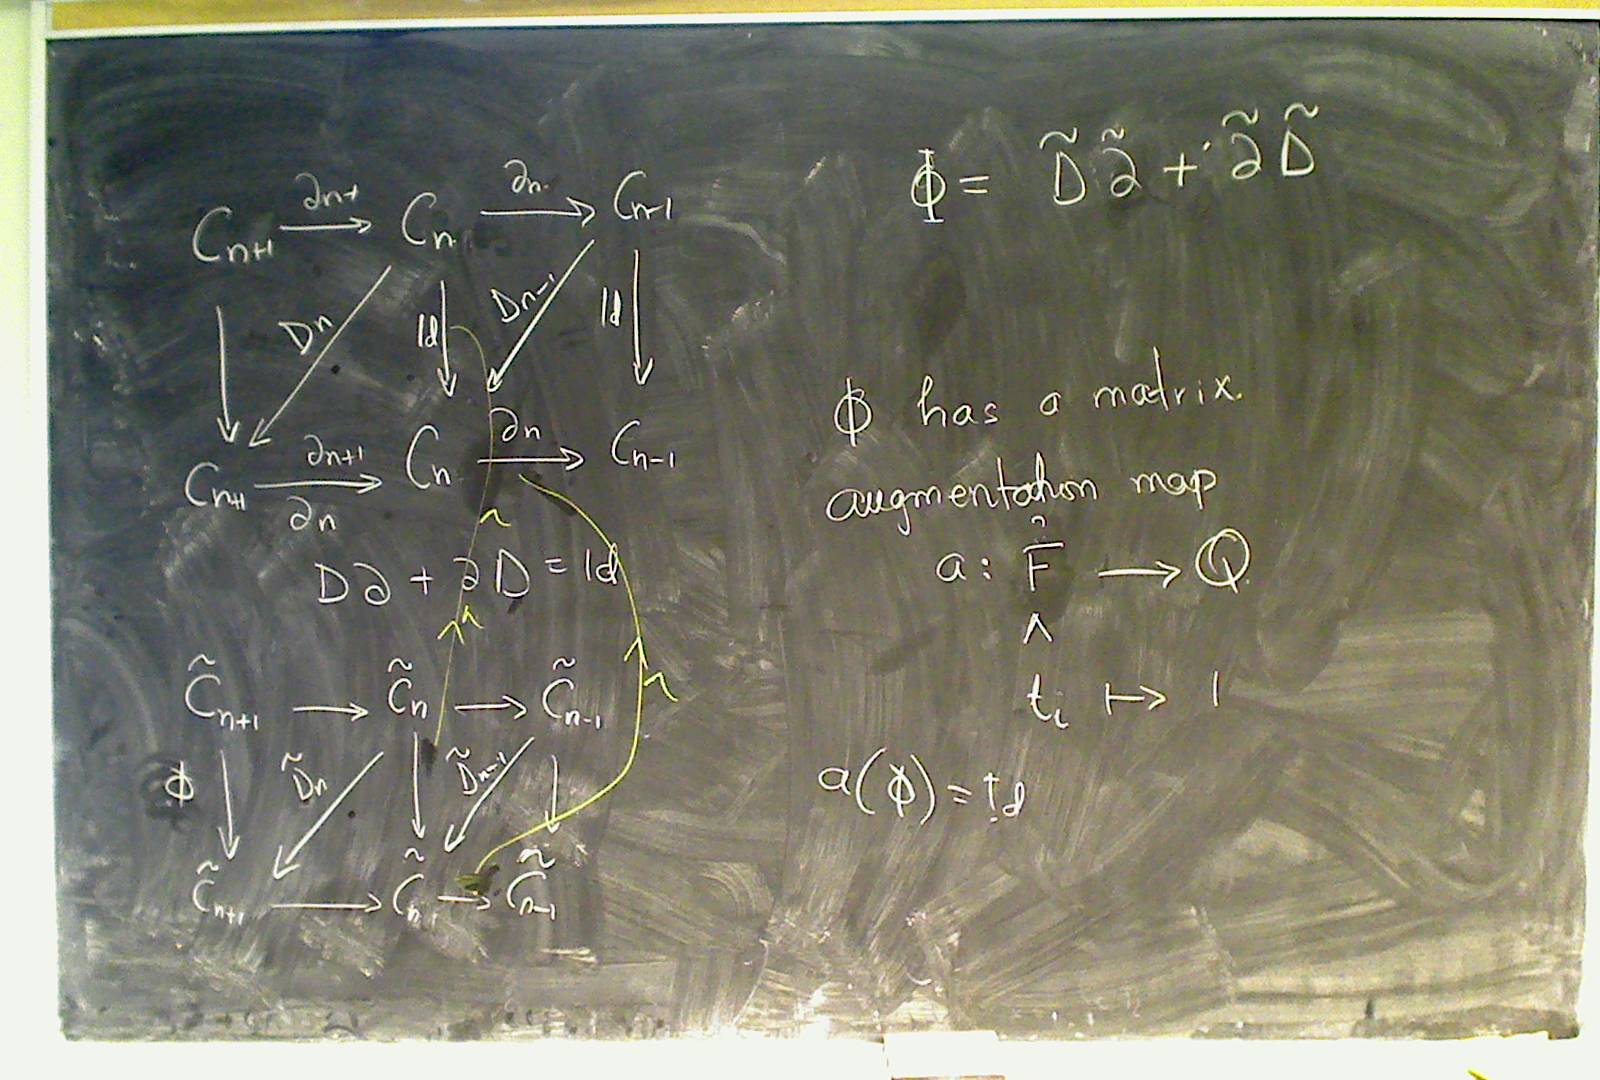 C_{n+1} —∂n+→ C_n —∂n→ C_{n-1}
Dn Id Dn-1 Id
C_{n+1} —∂n+1→ C_n —∂n→ C_{n-1}
∂n
D∂ + ∂D = Id
C̃_{n+1} → C̃_n → C̃_{n-1}
ϕ D̃n D̃n-1
C̃_{n+1} → C̃_n → C̃_{n-1}
Φ = D̃ ∂̃ + ∂̃ D̃
ϕ has a matrix.
augmentation map
a: F̂ → Q
t_i ↦ 1
a(ϕ) = Id